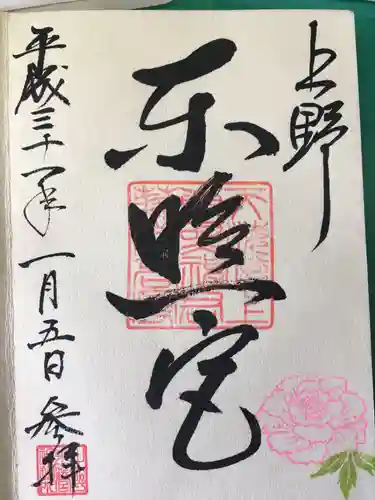 上野
東照宮
平成三十一年一月五日 参拝